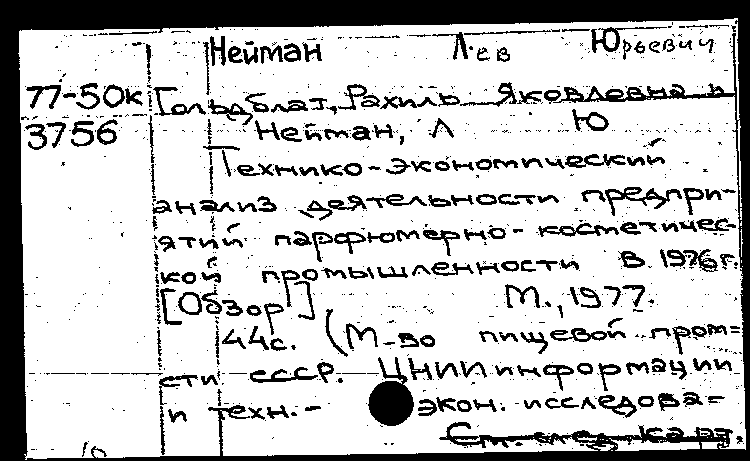 Нейман Лев Юрьевич
77-50к Гольдблат, Рахиль Яковлевна и
3756 Нейман, Л Ю
Технико-экономический
анализ деятельности предпри-
ятий парфюмерно-косметичес-
кой промышленности в 1976 г.
[Обзор] М., 1977.
44с. (М-во пищевой пром=
сти СССР. ЦНИИ информации
и техн.- экон. исследова=
См. след. карт.
10